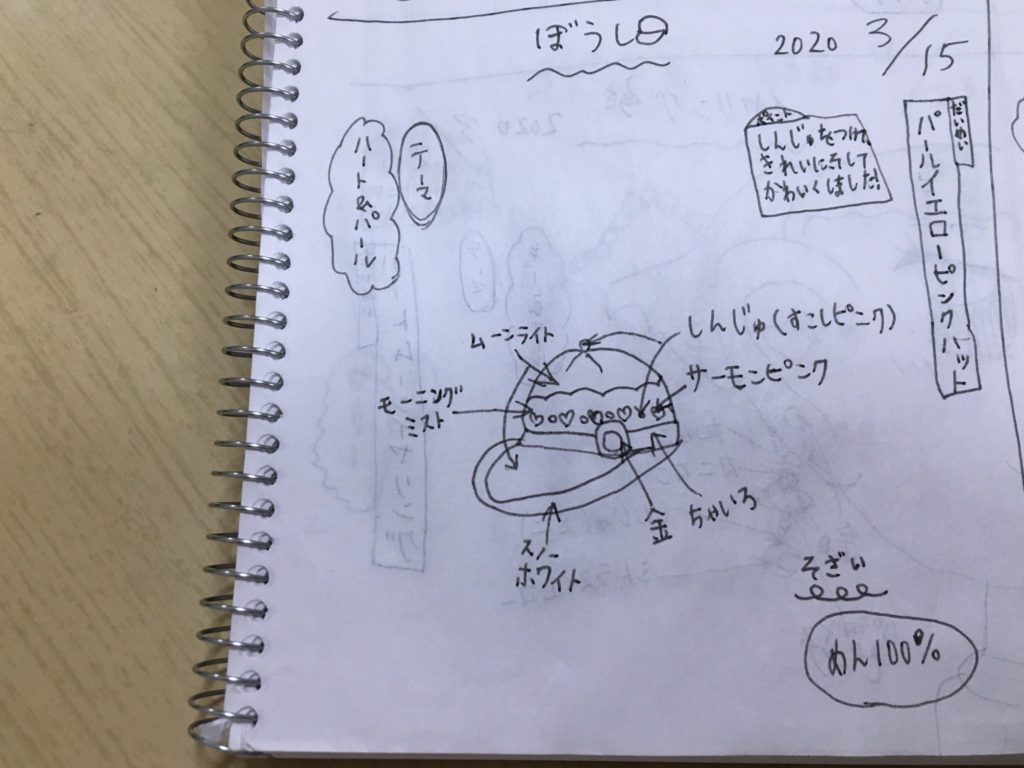 ぼうし
2020 3/15
だいめい
パールイエローピンクハット
しんじゅをつけて、
きれいにそして
かわいくしました!
テーマ
ハート&パール
ムーンライト
しんじゅ(すこしピンク)
サーモンピンク
モーニング
ミスト
ちゃいろ
金
スノー
ホワイト
そざい
めん100%